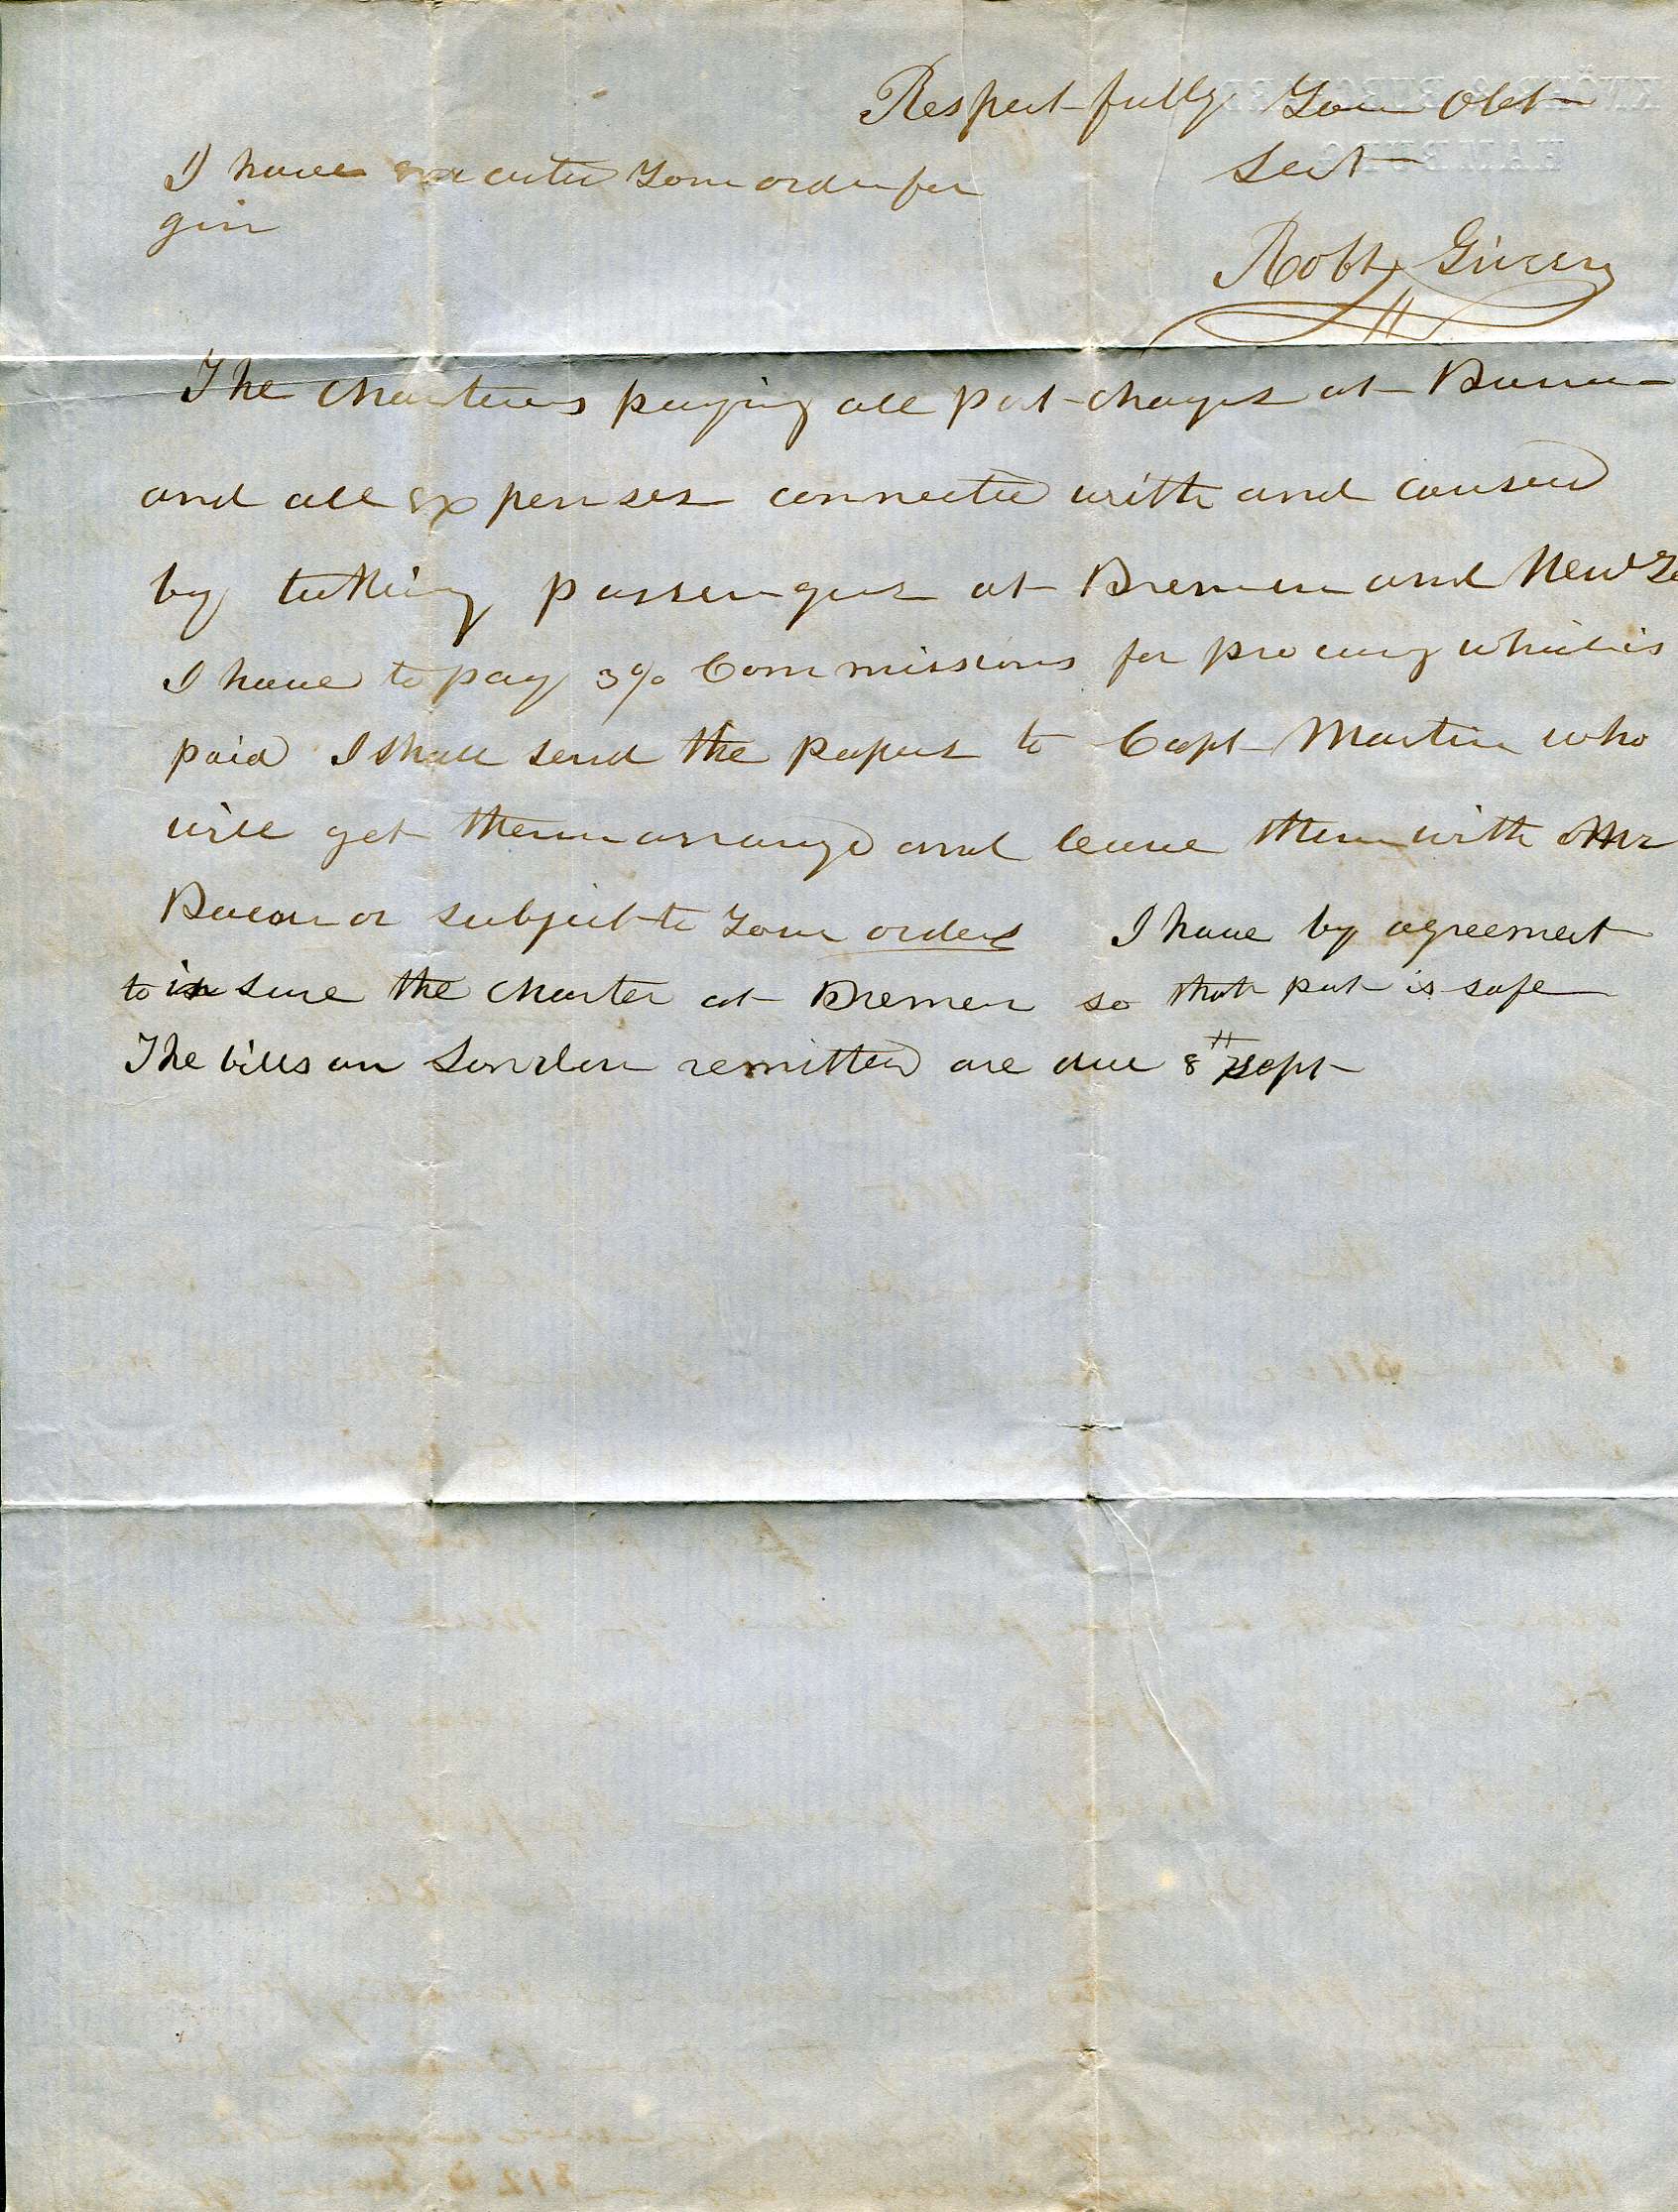 Respectfully Your Obt
Sevt
I have executed Your order for
gin
Robt
The Charterers paying all port charges at Bremen
and all expenses connected with and caused
by taking passengers at Bremen and New Yo
I have to pay 3% Commissions for procuring which is
paid I shall send the papers to Capt Martin who
will get them arranged and leave them with Mr
Bacon or subject to Your orders I have by agreement
to insure the charter at Bremen so that part is safe
The bills on London remitted are due 8th Sept